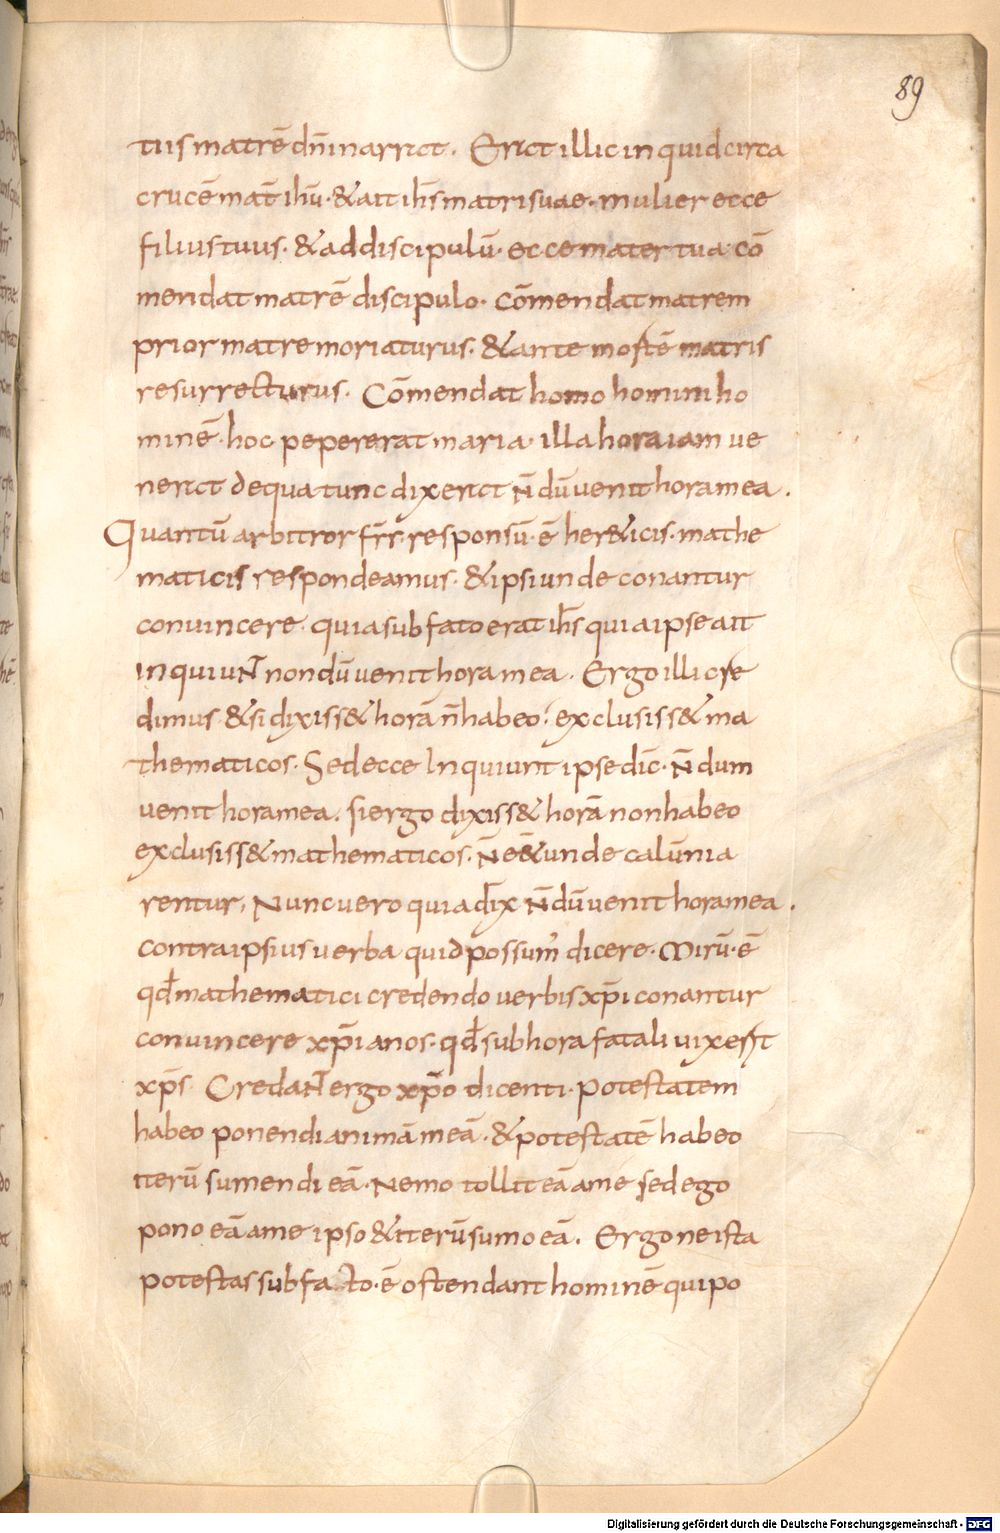 89
tus matrē dn̄i narrat. Erat illic inquid circa
crucē mat̄ ihū. & ait ih̄s matri suae. mulier ecce
filius tuus. & ad discipulū. ecce mater tua. cō
mendat matrē discipulo. cōmendat matrem
prior matre moriaturus. & ante mostē matris
resurrecturus. Cōmendat homo homini ho
minē. hoc pepererat maria. illa hora iam ue
nerat de qua tunc dixerat n̄ dū uenit hora mea.
Quantū arbitror fr̄r̄ responsū. ē her&icis. mathe
maticis respondeamus. & ipsi unde conantur
conuincere. quia sub fato erat ih̄s quia ipse ait
inquiunt nondū uenit hora mea. Ergo illi cre
dimus. & si dixiss& horā n̄ habeo. exclusiss& ma
thematicos. Sed ecce Inquiunt ipse dic̄. n̄ dum
uenit hora mea. si ergo dixiss& horā non habeo
exclusiss& mathematicos. n̄ e&̄ unde calūnia
rentur, Nunc uero quia dix̄ n̄ dū uenit hora mea.
contra ipsius uerba quid possum' dicere. Mirū. ē
qd̄ mathematici credendo uerbis xp̄i conantur
conuincere xp̄ianos. qd̄ sub hora fatali uixerit
xp̄s. Credant ergo xp̄o dicenti. potestatem
habeo ponendi animā meā. & potestatē habeo
iterū sumendi eā. Nemo tollit eā a me sed ego
pono eā a me ipso & iterū sumo eā. Ergo ne ista
potestas sub fato. ē ostendant hominē qui po
Digitalisierung gefördert durch die Deutsche Forschungsgemeinschaft - DFG